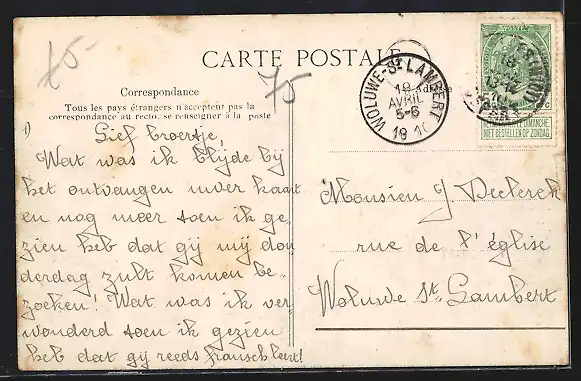 75-
CARTE POSTALE
75
Correspondance
Tous les pays étrangers n'acceptent pas la
correspondance au recto, se renseigner à la poste
WOLUWE-St LAMBERT
18
AVRIL
5-6
1910
NIET BESTELLEN OP ZONDAG
Lief broertje,
Wat was ik blijde bij
het ontvangen uwer kaart
en nog meer toen ik ge-
zien heb dat gij mij don
derdag zult komen be-
zoeken! Wat was ik ver
wonderd toen ik gezien
heb dat gij reeds fransch leert!
Monsieu J. Declerck
rue de l'église
Woluwe St. Lambert